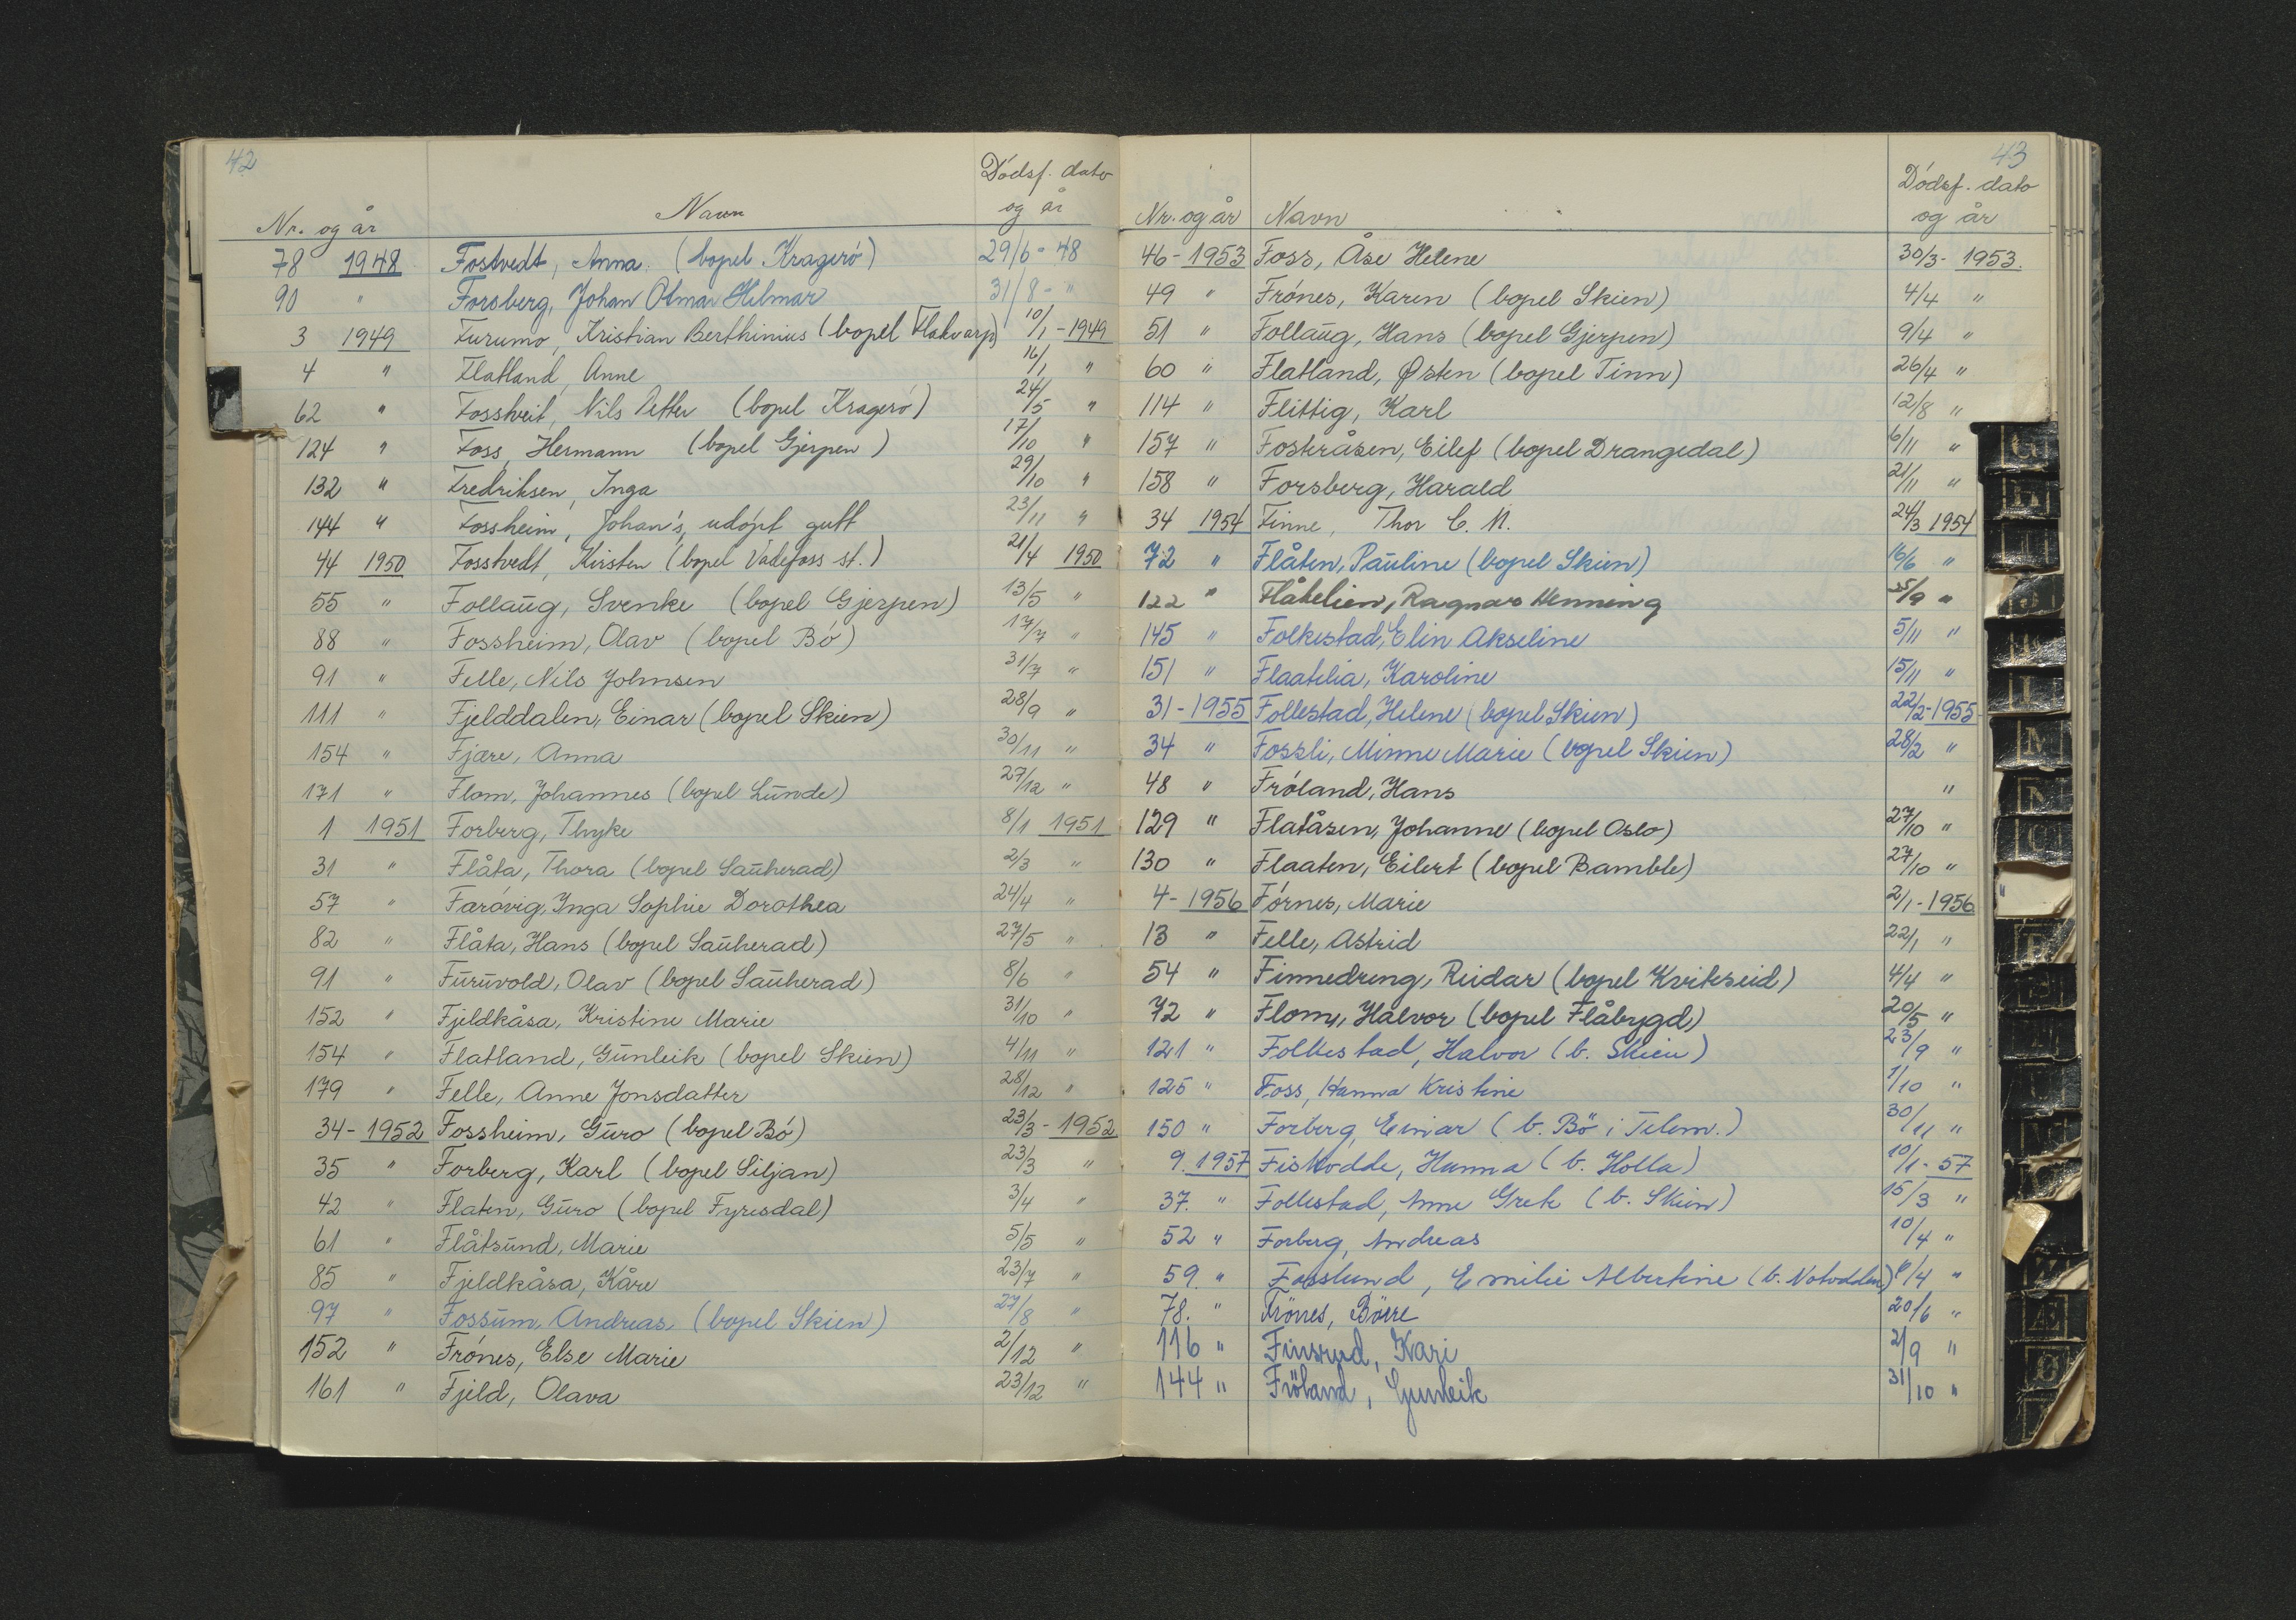 42
Dödsf. dato
Nr. og år Navn og år
78 1948 Fostvedt, Anna. (bopel Kragerö) 29/6 - 48
90 " Forsberg, Johan Otmar Hilmar 31/8 - "
3 1949 Furumo, Kristian Berthinius (bopel Flakvarp) 10/1 - 1949
4 " Flatland, Anne 16/1 "
62 " Fosstveit, Nils Petter (bopel Kragerö) 24/5 "
124 " Foss, Hermann (bopel Gjerpen) 17/10 "
132 " Fredriksen, Inga 29/10 "
144 " Fossheim, Johan's, udöpt gutt 23/11 "
44 1950 Fosstvedt, Kirsten (bopel Vadefoss st.) 21/4 1950
55 " Follaug, Svenke (bopel Gjerpen) 13/5 "
88 " Fossheim, Olav (bopel Bö) 17/7 "
91 " Felle, Nils Johnsen 31/7 "
111 " Fjelddalen, Einar (bopel Skien) 28/9 "
154 " Fjære, Anna 30/11 "
171 " Flom, Johannes (bopel Lunde) 27/12 "
1 1951 Forberg, Thyke 8/1 1951
31 " Flåta, Thora (bopel Sauherad) 2/3 "
57 " Farövig, Inga Sophie Dorothea 24/4 "
82 " Flåta, Hans (bopel Sauherad) 27/5 "
91 " Furuvold, Olav (bopel Sauherad) 8/6 "
152 " Fjeldkåsa, Kristine Marie 31/10 "
154 " Flatland, Gunleik (bopel Skien) 4/11 "
179 " Felle, Anne Jonsdatter 28/12 "
34 - 1952 Fossheim, Guro (bopel Bö) 23/3 - 1952
35 " Forberg, Karl (bopel Siljan) 23/3 "
42 " Flaten, Guro (bopel Fyresdal) 3/4 "
61 " Flåtsund, Marie 5/5 "
85 " Fjeldkåsa, Kåre 23/7 "
97 " Fossum, Andreas (bopel Skien) 27/8 "
152 " Frönes, Else Marie 2/12 "
161 " Fjeld, Olava 23/12 "
43
Dödsf. dato
Nr. og år Navn og år
46 - 1953 Foss, Åse Helene 30/3 - 1953.
49 " Frönes, Karen (bopel Skien) 4/4 "
51 " Follaug, Hans (bopel Gjerpen) 9/4 "
60 " Flatland, Østen (bopel Tinn) 26/4 "
114 " Flittig, Karl 12/8 "
157 " Foskråsen, Eilef (bopel Drangedal) 6/11 "
158 " Forsberg, Harald 21/11 "
34 1954 Finne, Thor C. M. 24/3 1954
72 " Flåten, Pauline (bopel Skien) 16/6 "
122 " Flåtelien, Ragnar Henning /9 "
145 " Folkestad, Elin Akseline 5/11 "
151 " Flaatelia, Karoline 15/11 "
31 - 1955 Follestad, Helene (bopel Skien) 22/2 - 1955
34 " Fossli, Minne Marie (bopel Skien) 28/2 "
48 " Fröland, Hans "
129 " Flatåsen, Johanne (bopel Oslo) 27/10 "
130 " Flaaten, Eilert (bopel Bamble) 27/10 "
4 - 1956 Förnes, Marie 2/1 - 1956
13 " Felle, Astrid 22/1 "
54 " Finnedreng, Reidar (bopel Kvitseid) 4/4 "
72 " Flom, Halvor (bopel Flåbygd) 20/5 "
121 " Folkestad, Halvor (b. Skien) 23/9 "
125 " Foss, Hanna Kristine 1/10 "
150 " Forberg, Einar (b. Bö i Telem.) 30/11 "
9. 1957 Fiskodde, Hanna (b. Holla) 10/1 - 57
37. " Follestad, Anne Grete (b. Skien) 15/3 "
52 " Forberg, Andreas 10/4 "
59. " Fosslund, Emilie Albertine (b. Notodden) /4 "
78. " Frönes, Börre 20/6 "
116 " Finsrud, Kari 2/9 "
144 " Fröland, Gunleik 31/10 "
G
H
I
M
N
O
P
Æ
Ø